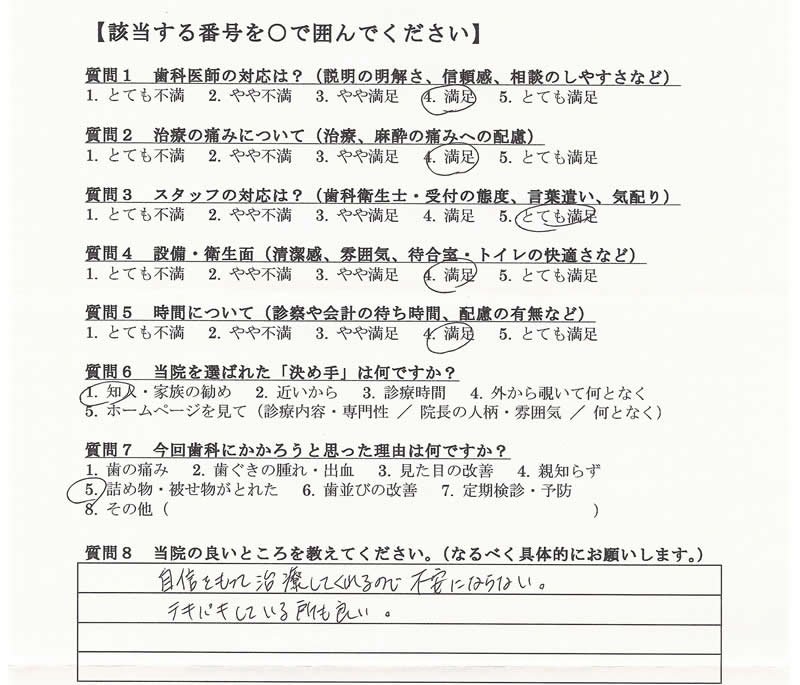 【該当する番号を○で囲んでください】
質問1 歯科医師の対応は?(説明の明解さ、信頼感、相談のしやすさなど)
1. とても不満 2. やや不満 3. やや満足 4. 満足 5. とても満足
質問2 治療の痛みについて(治療、麻酔の痛みへの配慮)
1. とても不満 2. やや不満 3. やや満足 4. 満足 5. とても満足
質問3 スタッフの対応は?(歯科衛生士・受付の態度、言葉遣い、気配り)
1. とても不満 2. やや不満 3. やや満足 4. 満足 5. とても満足
質問4 設備・衛生面(清潔感、雰囲気、待合室・トイレの快適さなど)
1. とても不満 2. やや不満 3. やや満足 4. 満足 5. とても満足
質問5 時間について(診察や会計の待ち時間、配慮の有無など)
1. とても不満 2. やや不満 3. やや満足 4. 満足 5. とても満足
質問6 当院を選ばれた「決め手」は何ですか?
1. 知人・家族の勧め 2. 近いから 3. 診療時間 4. 外から覗いて何となく
5. ホームページを見て(診療内容・専門性 / 院長の人柄・雰囲気 / 何となく)
質問7 今回歯科にかかろうと思った理由は何ですか?
1. 歯の痛み 2. 歯ぐきの腫れ・出血 3. 見た目の改善 4. 親知らず
5. 詰め物・被せ物がとれた 6. 歯並びの改善 7. 定期検診・予防
8. その他( )
質問8 当院の良いところを教えてください。(なるべく具体的にお願いします。)
自信をもって治療してくれるので不安にならない。
テキパキしている所も良い。